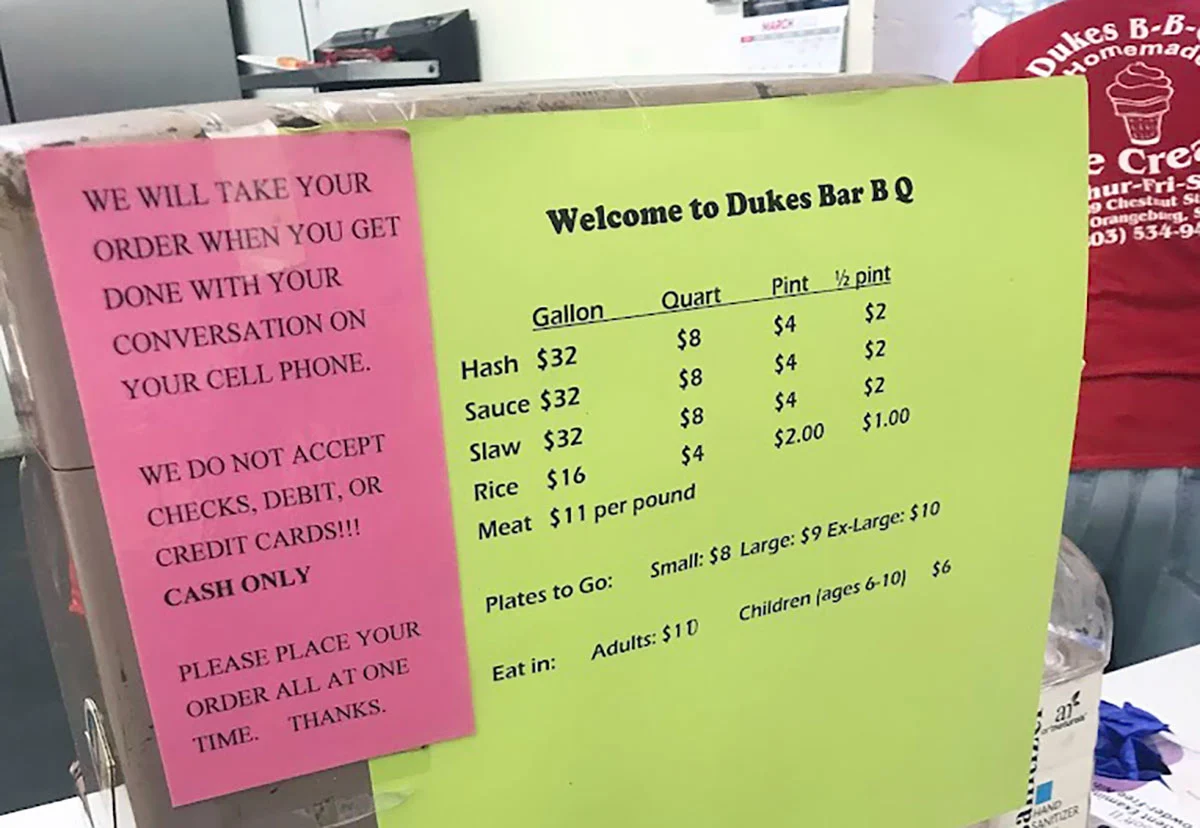 WE WILL TAKE YOUR
ORDER WHEN YOU GET
DONE WITH YOUR
CONVERSATION ON
YOUR CELL PHONE.
WE DO NOT ACCEPT
CHECKS, DEBIT, OR
CREDIT CARDS!!!
CASH ONLY
PLEASE PLACE YOUR
ORDER ALL AT ONE
TIME. THANKS.
Welcome to Dukes Bar B Q
Gallon Quart Pint ½ pint
Hash $32 $8 $4 $2
Sauce $32 $8 $4 $2
Slaw $32 $8 $4 $2
Rice $16 $4 $2.00 $1.00
Meat $11 per pound
Plates to Go: Small: $8 Large: $9 Ex-Large: $10
Eat in: Adults: $10 Children (ages 6-10) $6
MARCH
Dukes B-B-
Homemade
e Crea
hur-Fri-S
9 Chestnut St
Orangeburg,
03) 534-94
art
naturals
HAND
SANITIZER